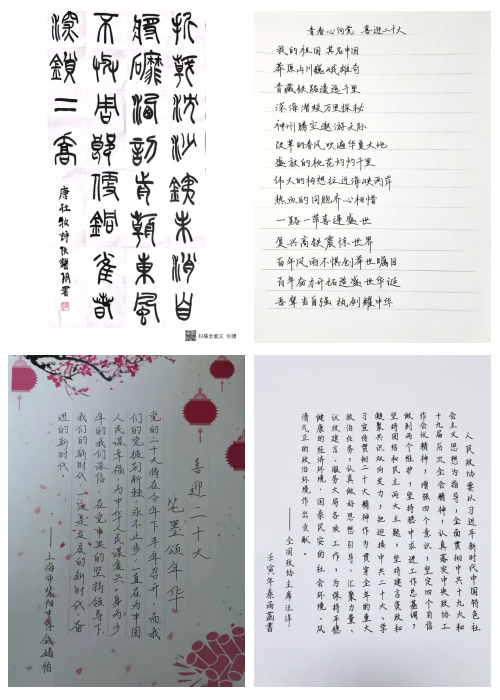 折戟沈沙鐵未消自
將磨洗認前朝東風
不與周郎便銅雀春
深鎖二喬
唐杜牧詩
扫描全能王 创建
青春心向党 喜迎二十大
我的祖国 其名中国
莽原山川巍峨雄奇
青藏铁路漫漫千里
深海潜蛟万里探秘
神州腾空遨游天际
改革的春风吹遍华夏大地
盛放的桃花灼灼千里
伟大的构想拉近海峡两岸
热血的同胞齐心相惜
一路一带喜逢盛世
复兴高铁震惊世界
百年风雨不惧创举世瞩目
百年奋力开拓造盛世华诞
吾辈当自强 执剑耀中华
喜迎二十大
笔墨颂年华
党的二十大将在今年下半年召开，而我
们的党披荆斩棘，永不止步，一直在为中国
人民谋幸福，为中华人民谋复兴。身为少
年的我们深信，在党中央的坚持领导下，
我们的新时代，一定是发展的新时代，奋
进的新时代。
——上海市
人民政协要以习近平新时代中国特色社
会主义思想为指导，全面贯彻中共十九大和
十九届历次全会精神，认真落实中央政协工
作会议精神，增强四个意识，坚定四个自信
做到两个维护，坚持稳中求进工作总基调，
坚持团结和民主两大主题，坚持建言资政和
凝聚共识双向发力，把迎接中共二十大、学
习宣传贯彻二十大精神作为贯穿全年的重大
政治任务，认真做好思想引导、汇聚力量、
议政建言、服务大局各项工作，为保持平稳
健康的经济环境、国泰民安的社会环境、风
清气正的政治环境作出贡献。
——全国政协主席汪洋